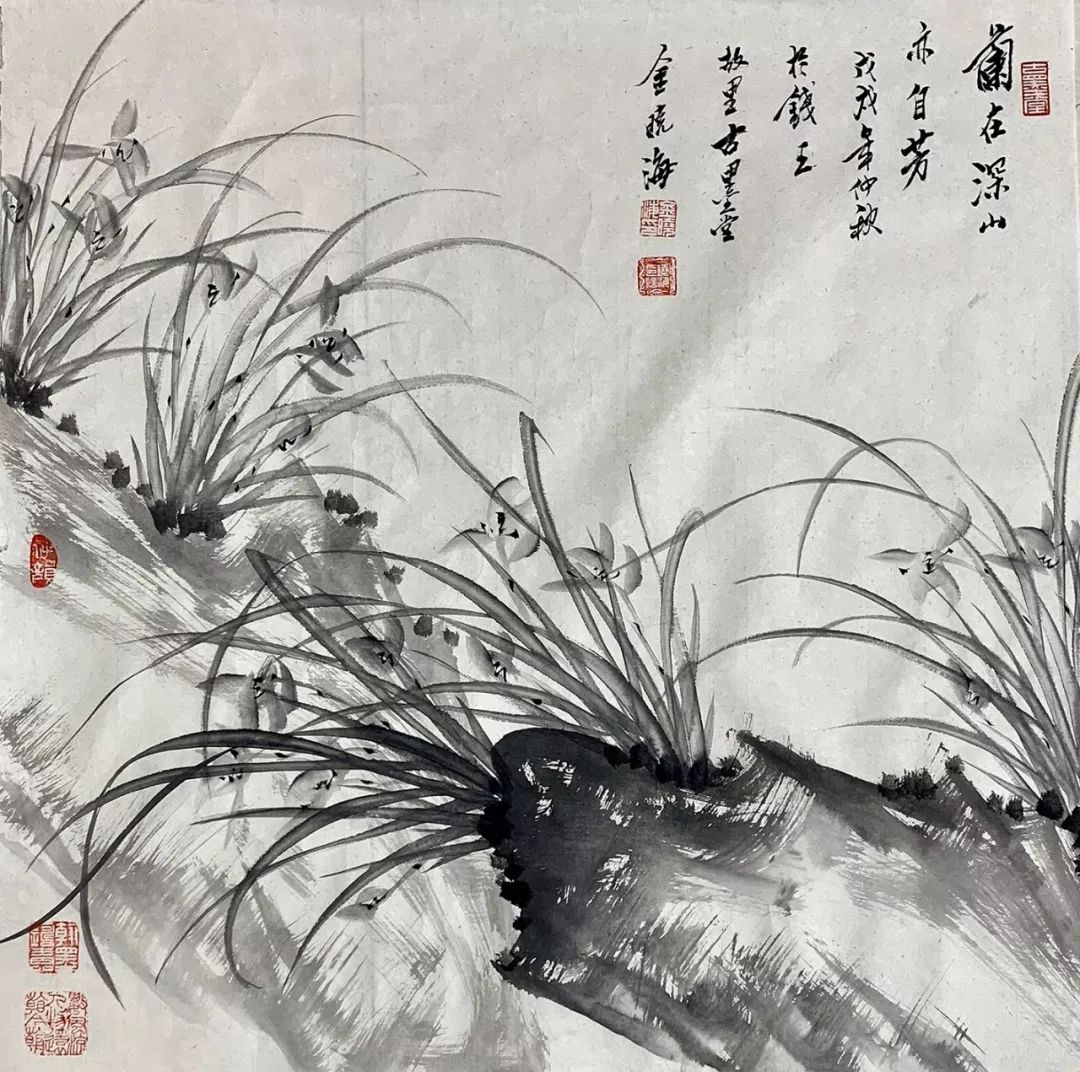 古墨堂
蘭在深山
亦自芳
戊戌年仲秋
於錢王
故里古墨堂
金晓海